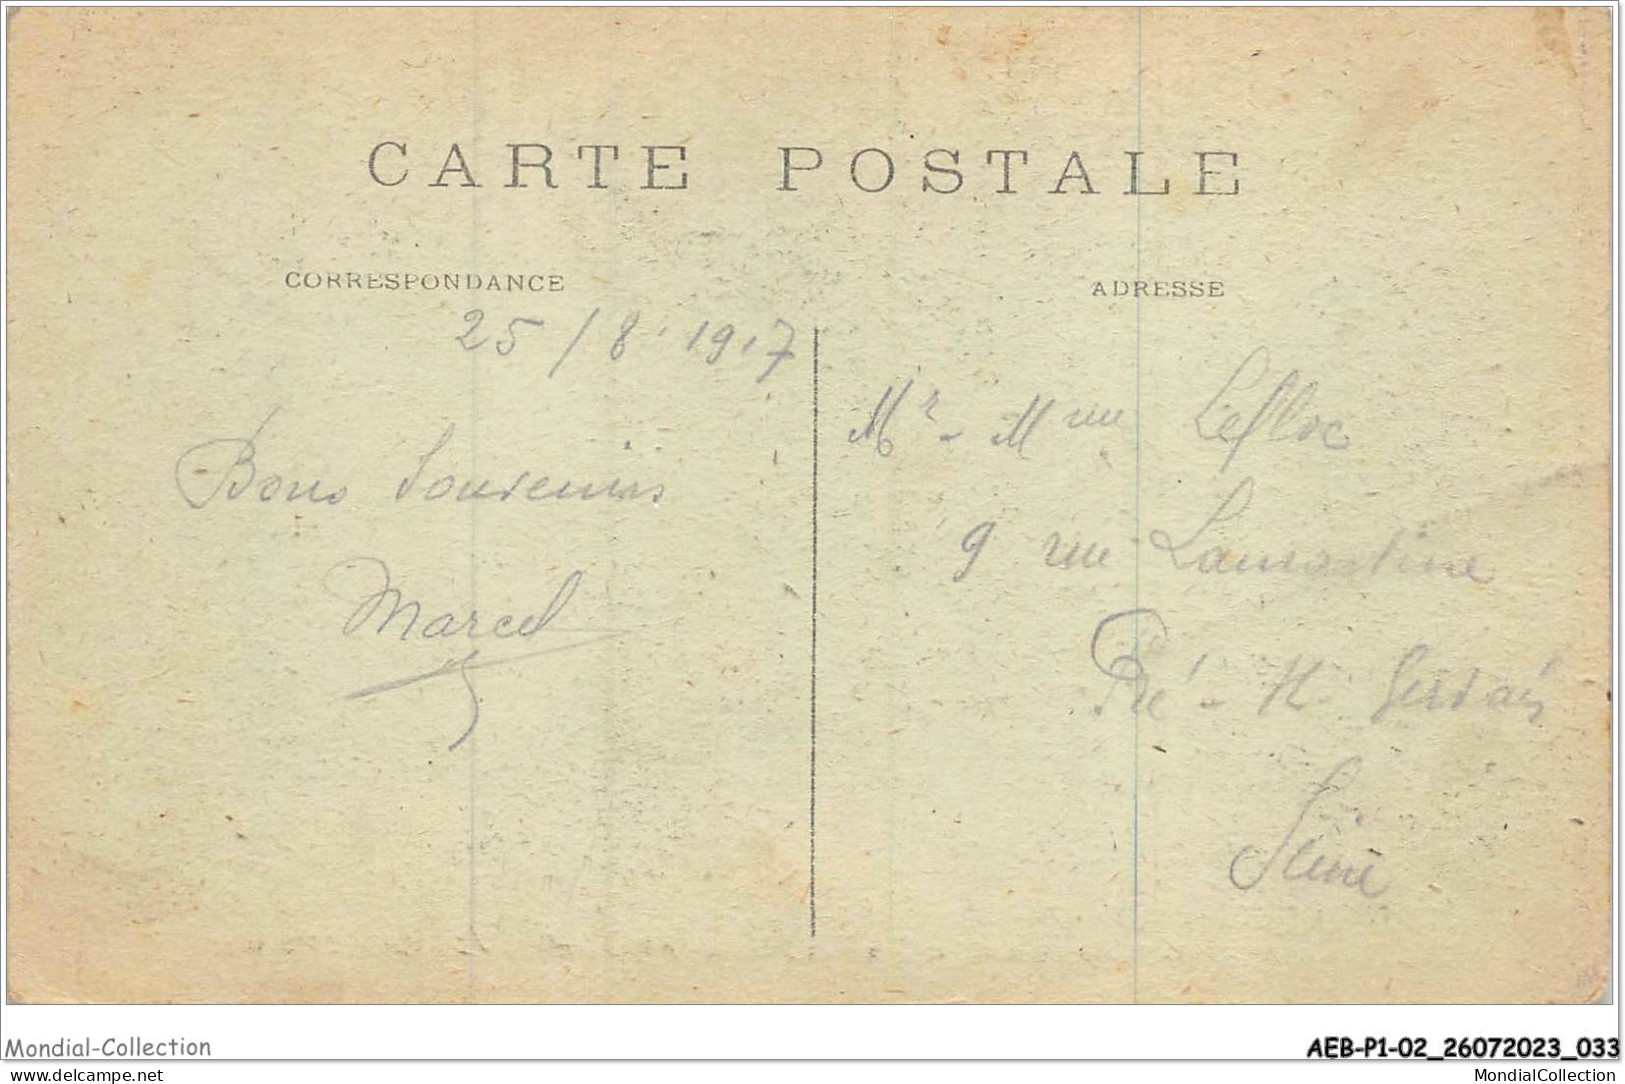 CARTE POSTALE
CORRESPONDANCE
25/8.1917
Bons Souvenirs
Marcel
ADRESSE
Mr. Mme Lefloc
9 rue Lamartine
Pré-St Gervais
Seine
Mondial-Collection
AEB-P1-02_26072023_033
www.delcampe.net
MondialCollection